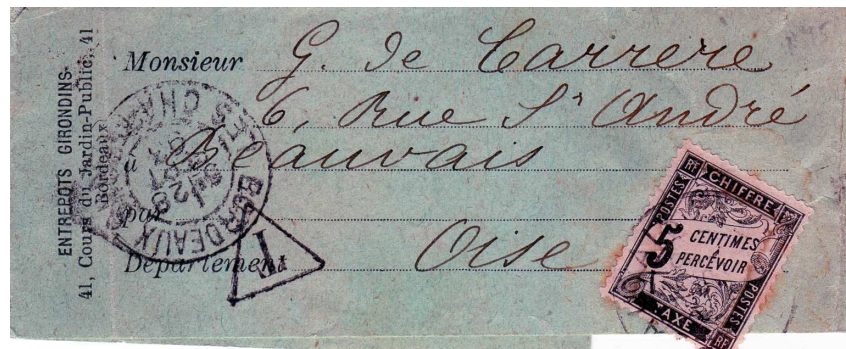 ENTREPOTS GIRONDINS-
41, Cours du Jardin-Public, 41
Bordeaux
Monsieur G. de Carrere
6, Rue St André
à Beauvais
par
Département Oise
BORDEAUX
28
T
RF
CHIFFRE
POSTES
5 CENTIMES
À
PERCEVOIR
POSTES
TAXE
RF